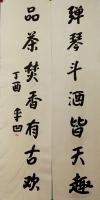 弹琴斗酒皆天趣
品茶焚香有古欢
丁酉 平凹